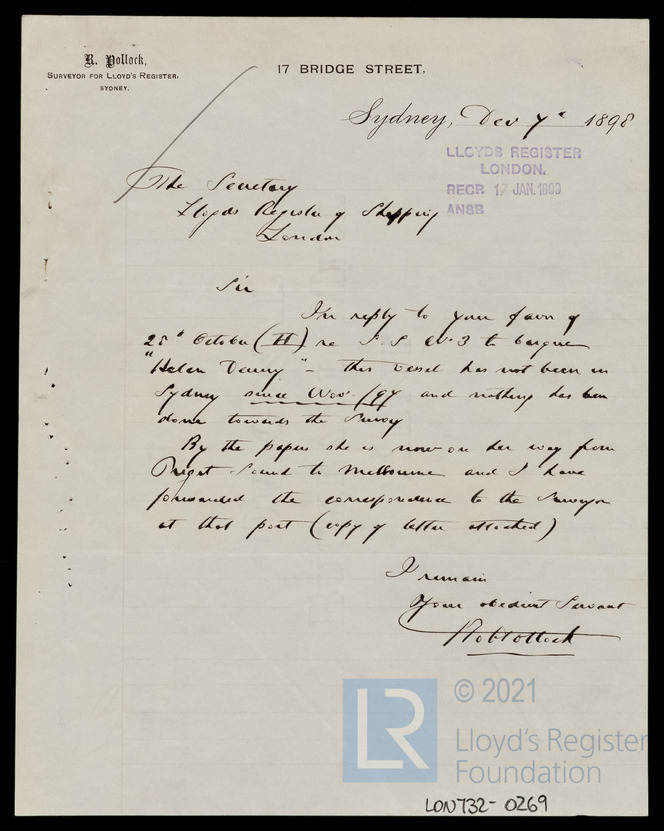 R. Pollock,
SURVEYOR FOR LLOYD'S REGISTER,
SYDNEY.
17 BRIDGE STREET,
Sydney, Dec 7th 1898
LLOYDS REGISTER
LONDON.
RECR 17 JAN. 1899
ANSR
The Secretary
Lloyds Register of Shipping
London
Sir
In reply to your favor of
28th October (H) re S.S No 3 to barque
"Helen Denny" - this vessel has not been in
Sydney since Novr /97 and nothing has been
done towards the Survey
By the papers she is now on her way from
Puget Sound to Melbourne and I have
forwarded the correspondence to the Surveyor
at that port (copy of letter attached)
I remain
Your obedient Servant
RobPollock
© 2021
LR
Lloyd's Register
Foundation
LON732-0269